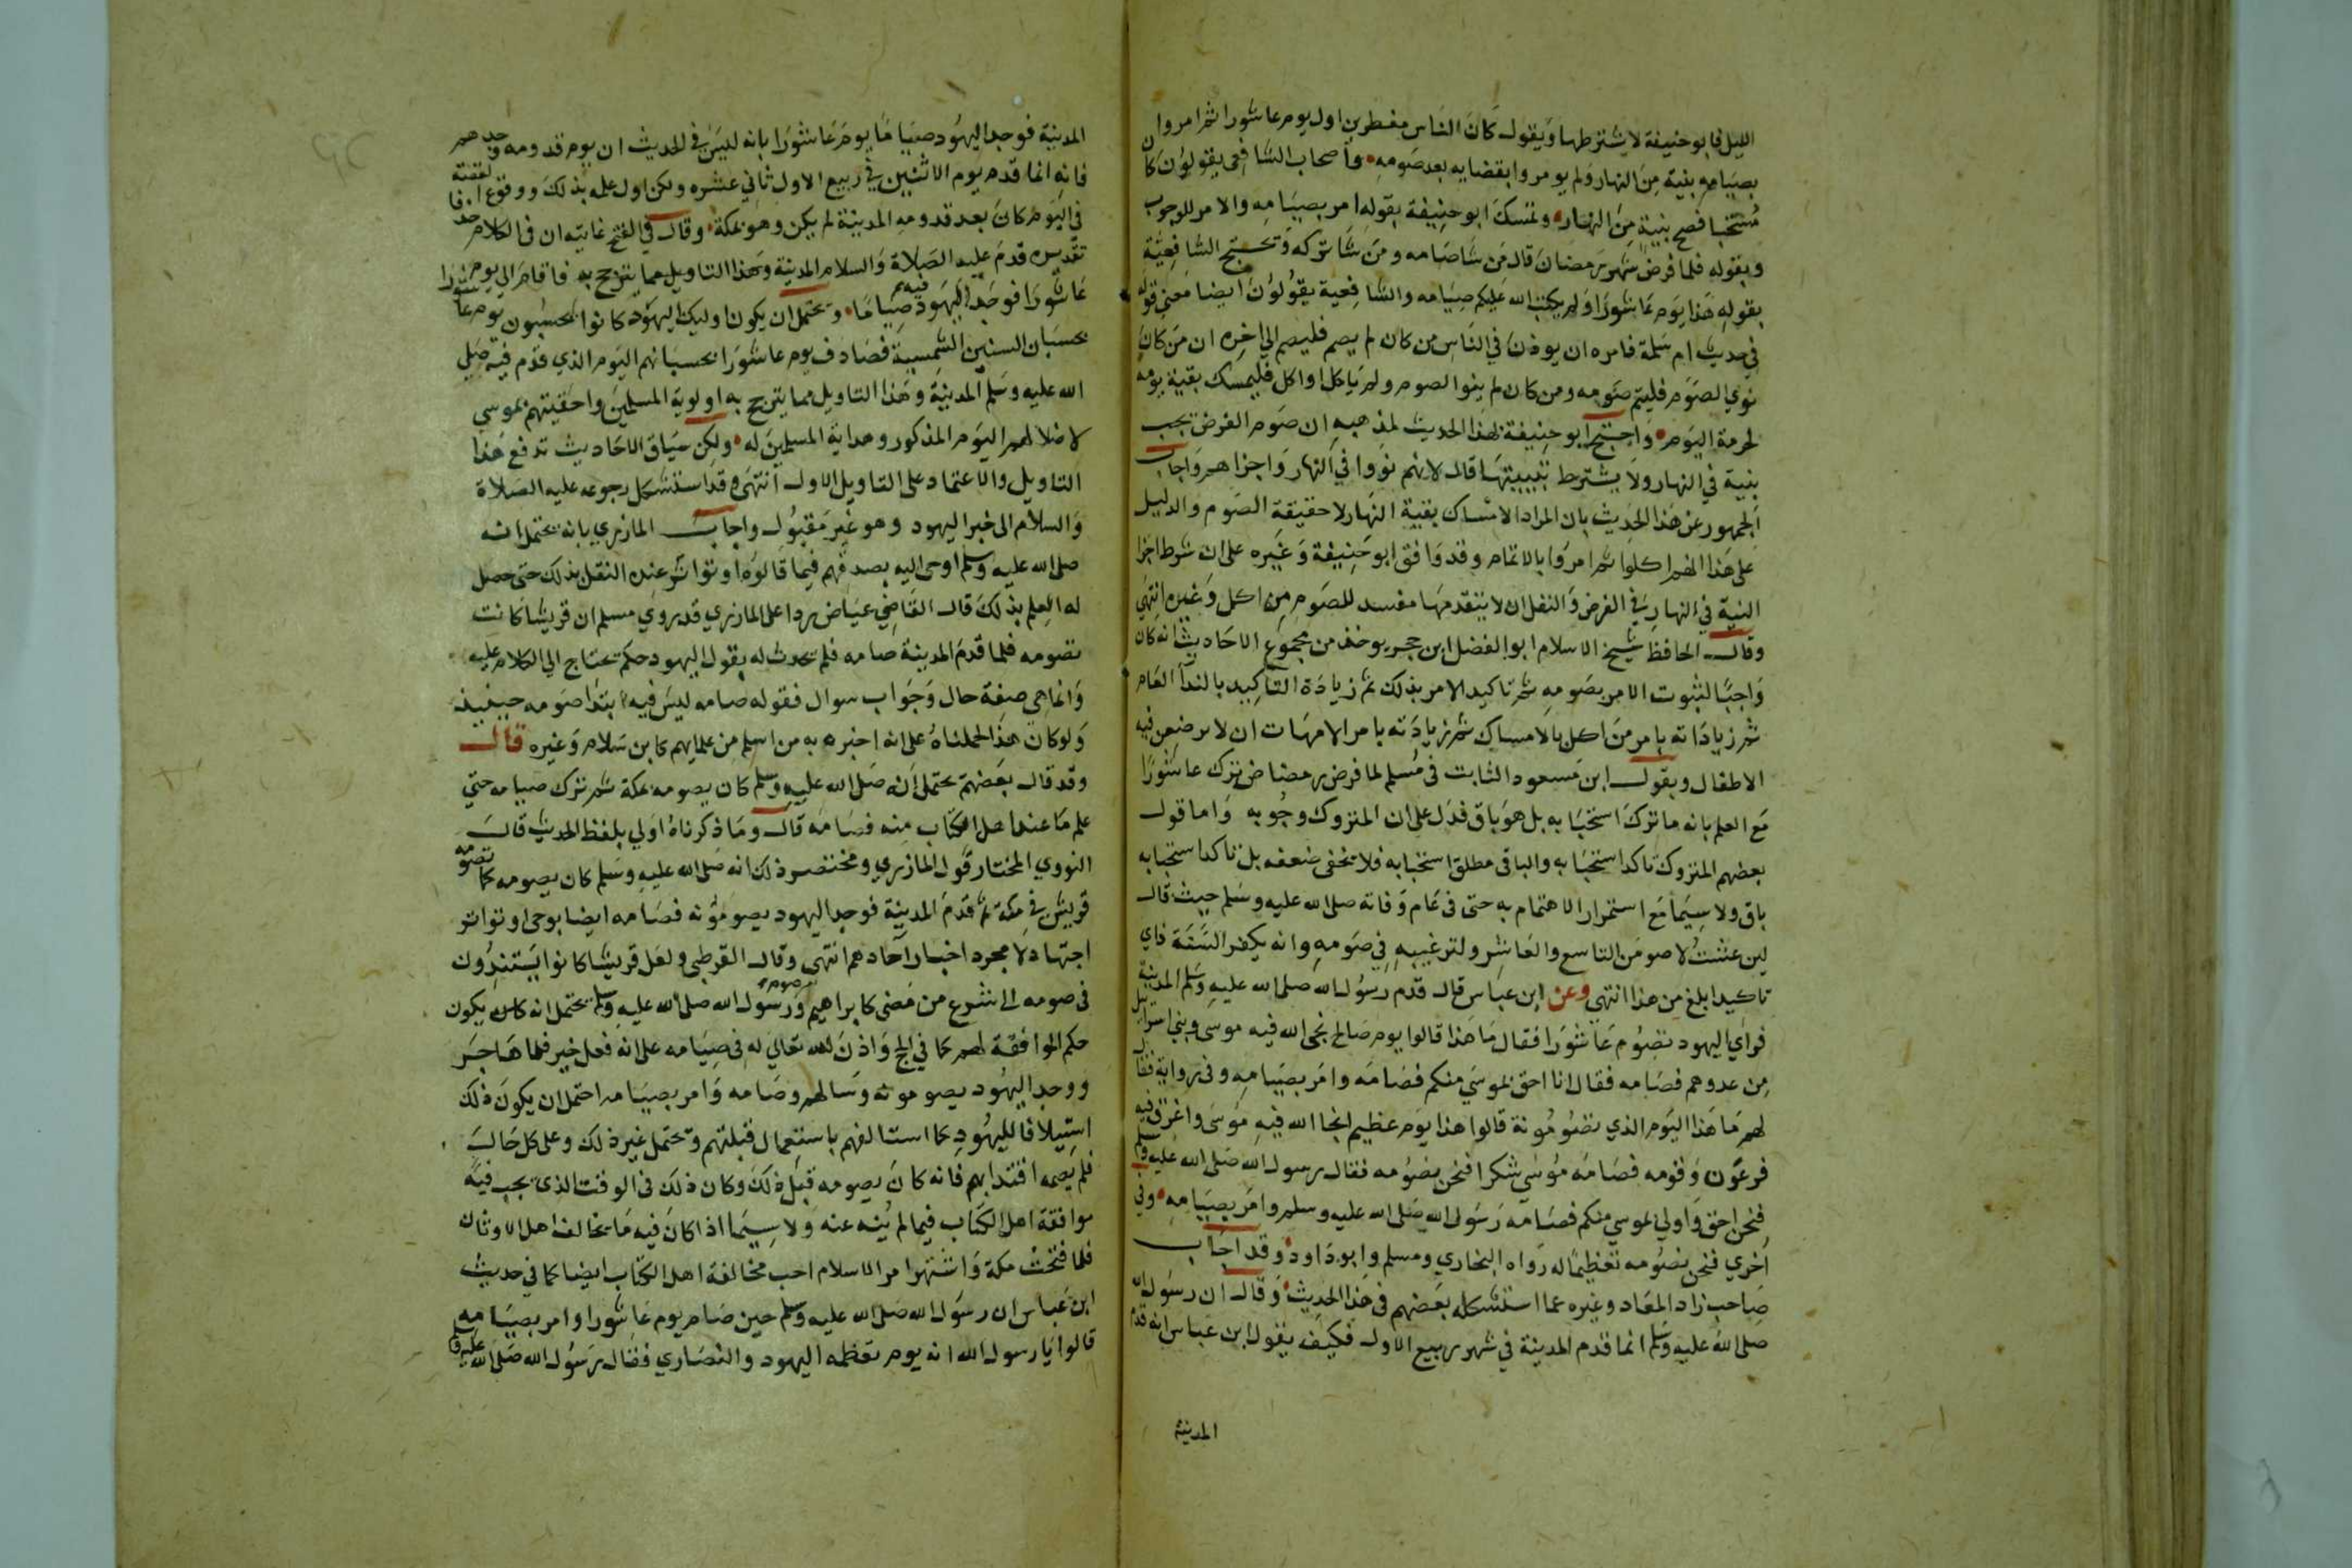 الليل فابو حنيفة لا يشترطها ويقول كان الناس مفطرين اول يوم عاشورا ثم امروا
بصيامه بنية من النهار ولم يومروا بقضايه بعد صومه واصحاب الشافعى يقولون كان
مستحبا فصح بنية من النهار وتمسك ابو حنيفة بقوله امر بصيامه والامر للوجوب
وبقوله فلما فرض شهر رمضان قال من شا صامه ومن شا تركه وتحتج الشافعية
بقوله هذا يوم عاشورا ولم يكتب الله عليكم صيامه والشافعية يقولون ايضا معنى قوله
في حديث ام سلمة فامره ان يوذن في الناس من كان لم يصم فليصم الي اخره ان من كان
نوي الصوم فليتم صومه ومن كان لم ينوا الصوم ولم ياكل او اكل فليمسك بقية يومه
لحرمة اليوم واحتج ابو حنيفة بهذا الحديث لمذهبه ان صوم الفرض يجب
بنية في النهار ولا يشترط تبييتها قال لانهم نووا في النهار واجزاهم واجاب
الجمهور عن هذا الحديث بان المراد الامساك بقية النهار لا حقيقة الصوم والدليل
على هذا انهم اكلوا ثم امروا بالاتمام وقد وافق ابو حنيفة وغيره على ان شرط اجزا
النية في النهار في الفرض والنفل ان لا يتقدمها مفسد للصوم من اكل وغيره انتهى
وقال الحافظ شيخ الاسلام ابو الفضل ابن حجر يوخذ من مجموع الاحاديث انه كان
واجبا لثبوت الامر بصومه ثم تاكيد الامر بذلك ثم زيادة التاكيد بالندا العام
ثم زيادته بامر من اكل بالامساك ثم زيادته بامر الامهات ان لا يرضعن فيه
الاطفال وبقول ابن مسعود الثابت في مسلم لما فرض رمضان ترك عاشورا
مع العلم بانه ما ترك استحبابه بل هو باق فدل على ان المتروك وجوبه واما قول
بعضهم المتروك تاكد استحبابه والباقي مطلق استحبابه فلا يخفى ضعفه بل تاكد استحبابه
باق ولا سيما مع استمرار الاهتمام به حتى في عام وفاته صلى الله عليه وسلم حيث قال
لين عشت لاصومن التاسع والعاشر ولترغيبه في صومه وانه يكفر السنة فاي
تاكيد ابلغ من هذا انتهي وعن ابن عباس قال قدم رسول الله صلى الله عليه وسلم المدينة
فراي اليهود تصوم عاشورا فقال ما هذا قالوا يوم صالح نجى الله فيه موسى وبني اسرائيل
من عدوهم فصامه فقال انا احق بموسي منكم فصامه وامر بصيامه وفي رواية فقال
لهم ما هذا اليوم الذي تصومونة قالوا هذا يوم عظيم انجا الله فيه موسى واغرق فيه
فرعون وقومه فصامه موسى شكرا فنحن نصومه فقال رسول الله صلى الله عليه وسلم
فنحن احق واولي بموسي منكم فصامه رسول الله صلى الله عليه وسلم وامر بصيامه وفي
اخري فنحن نصومه تعظيما له رواه البخاري ومسلم وابو داود وقد اجاب
صاحب زاد المعاد وغيره عما استشكله بعضهم في هذا الحديث وقال ان رسول الله
صلى الله عليه وسلم انما قدم المدينة في شهر ربيع الاول فكيف يقول ابن عباس انه قدم
المدينة
المدينة فوجد اليهود صياما يوم عاشورا بانه ليس في الحديث ان يوم قدومه وجدهم
فانه انما قدم يوم الاثنين في ربيع الاول ثاني عشره ولكن اول علمه بذلك ووقوع القصة
في اليوم كان بعد قدومه المدينة لم يكن وهو بمكة وقال في الفتح غايته ان في الكلام حذفا
تقديره قدم عليه الصلاة والسلام المدينة فاقام الي يوم
عاشورا فوجد اليهود فيه صياما ويحتمل ان يكون اوليك اليهود كانوا يحسبون يوم عاشورا
بحسبان السنين الشمسية فصادف يوم عاشورا بحسبانهم اليوم الذي قدم فيه صلى
الله عليه وسلم المدينة وهذا التاويل مما يترجح به اولوية المسلمين واحقيتهم بموسي
لاضلالهم اليوم المذكور وهداية المسلمين له ولكن سياق الاحاديث تدفع هذا
التاويل والاعتماد على التاويل الاول انتهى وقد استشكل رجوعه عليه الصلاة
والسلام الى خبر اليهود وهو غير مقبول واجاب المازري بانه يحتمل انه
صلى الله عليه وسلم اوحى اليه بصدقهم فيما قالوه او تواتر عنده النقل بذلك حتى حصل
له العلم بذلك قال القاضي عياض ردا على المازري قد روي مسلم ان قريشا كانت
تصومه فلما قدم المدينة صامه فلم تحدث له بقول اليهود حكم تحتاج الي الكلام عليه
وانما هي صفة حال وجواب سوال فقوله صامه ليس فيه ابتدا صومه حينيذ
ولو كان هذا لحملناه على انه اخبره به من اسلم من علمايهم كابن سلام وغيره قال
وقد قال بعضهم يحتمل انه صلى الله عليه وسلم كان يصومه بمكة ثم ترك صيامه حتي
علم ما عند اهل الكتاب منه فصامه قال وما ذكرناه اولي بلفظ الحديث قال
النووي المختار قول المازري ومختصر ذلك انه صلى الله عليه وسلم كان يصومه كما تصومه
قريش في مكة ثم قدم المدينة فوجد اليهود يصومونه فصامه ايضا بوحى او تواتر
اجتهاد لا مجرد اخبار آحادهم انتهى وقال القرطبى ولعل قريشا كانوا يستندون
في صومه الى شرع من مضى كابراهيم وصوم رسول الله صلى الله عليه وسلم يحتمل انه كان يكون
حكم الموافقة لهم كما في الحج واذن الله تعالى له في صيامه على انه فعل خير فلما هاجر
ووجد اليهود يصومونه وسالهم وصامه وامر بصيامه احتمل ان يكون ذلك
استيلافا لليهود كما استالفهم باستعمال قبلتهم ويحتمل غير ذلك وعلى كل حال
فلم يصمه اقتدا بهم فانه كان يصومه قبل ذلك وكان ذلك في الوقت الذي يحب فيه
موافقة اهل الكتاب فيما لم ينه عنه ولا سيما اذا كان فيه ما يخالف اهل الاوثان
فلما فتحت مكة واشتهر امر الاسلام احب مخالفة اهل الكتاب ايضا كما في حديث
ابن عباس ان رسول الله صلى الله عليه وسلم حين صام يوم عاشورا وامر بصيامه
قالوا يا رسول الله انه يوم تعظمه اليهود والنصاري فقال رسول الله صلى الله عليه وسلم